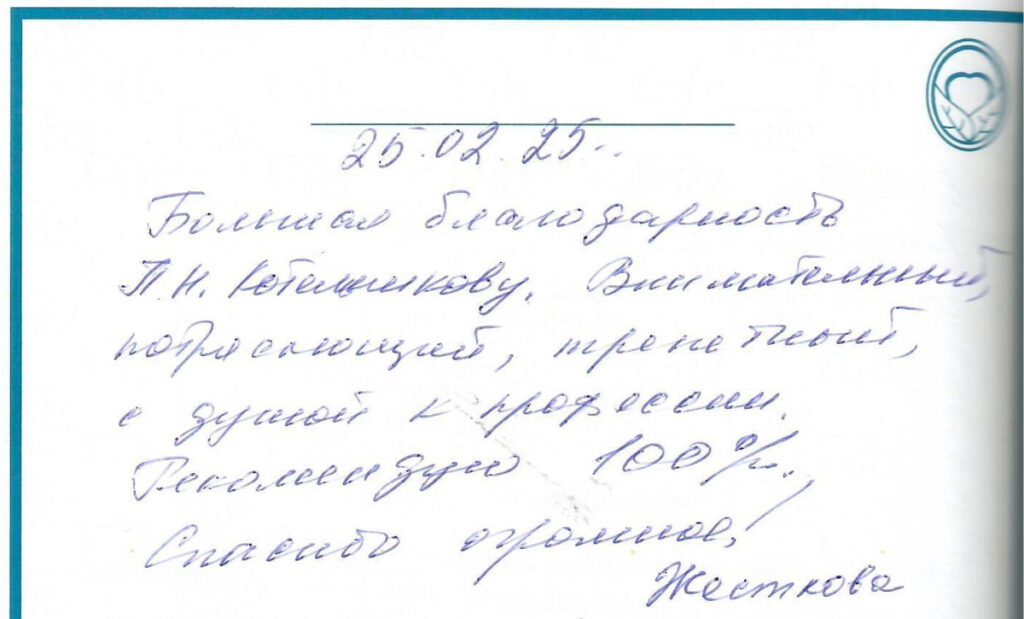 25.02.25..
Большая благодарность
П.Н. Котельникову. Внимательный,
потрясающий, трепетный,
с душой к профессии.
Рекомендую 100%!
Спасибо огромное!
Жесткова